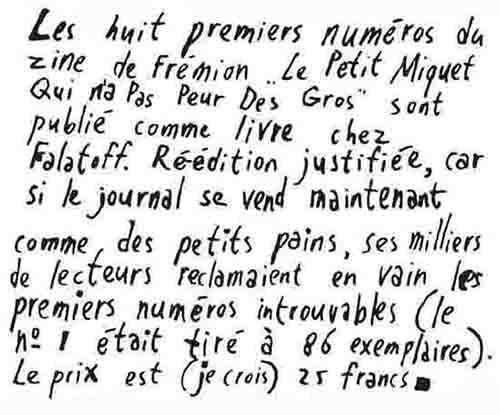 Les huit premiers numéros du
zine de Frémion „Le Petit Miquet
Qui n'a Pas Peur Des Gros" sont
publié comme livre chez
Falatoff. Réédition justifiée, car
si le journal se vend maintenant
comme des petits pains, ses milliers
de lecteurs reclamaient en vain les
premiers numéros introuvables (le
nº 1 était tiré à 86 exemplaires).
Le prix est (je crois) 25 francs.